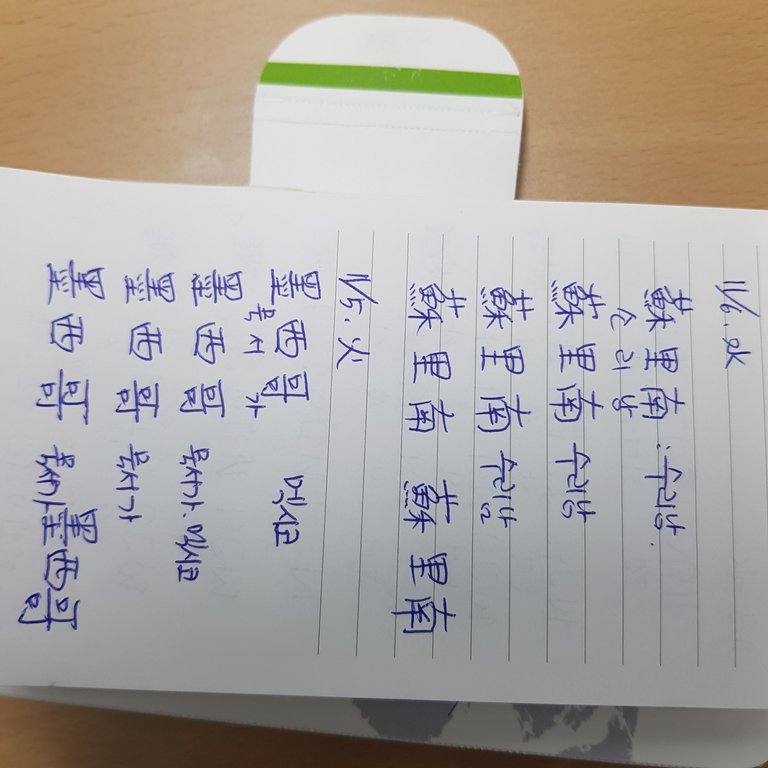 11/6. 水
蘇里南 : 수리남.
소 리 남
蘇里南 수리남
蘇里南 수리남
蘇里南 蘇里南
11/5. 火
墨西哥 멕시코
묵 서 가
墨西哥 묵서가. 멕시코
墨西哥 묵서가
墨西哥 묵서가 墨西哥